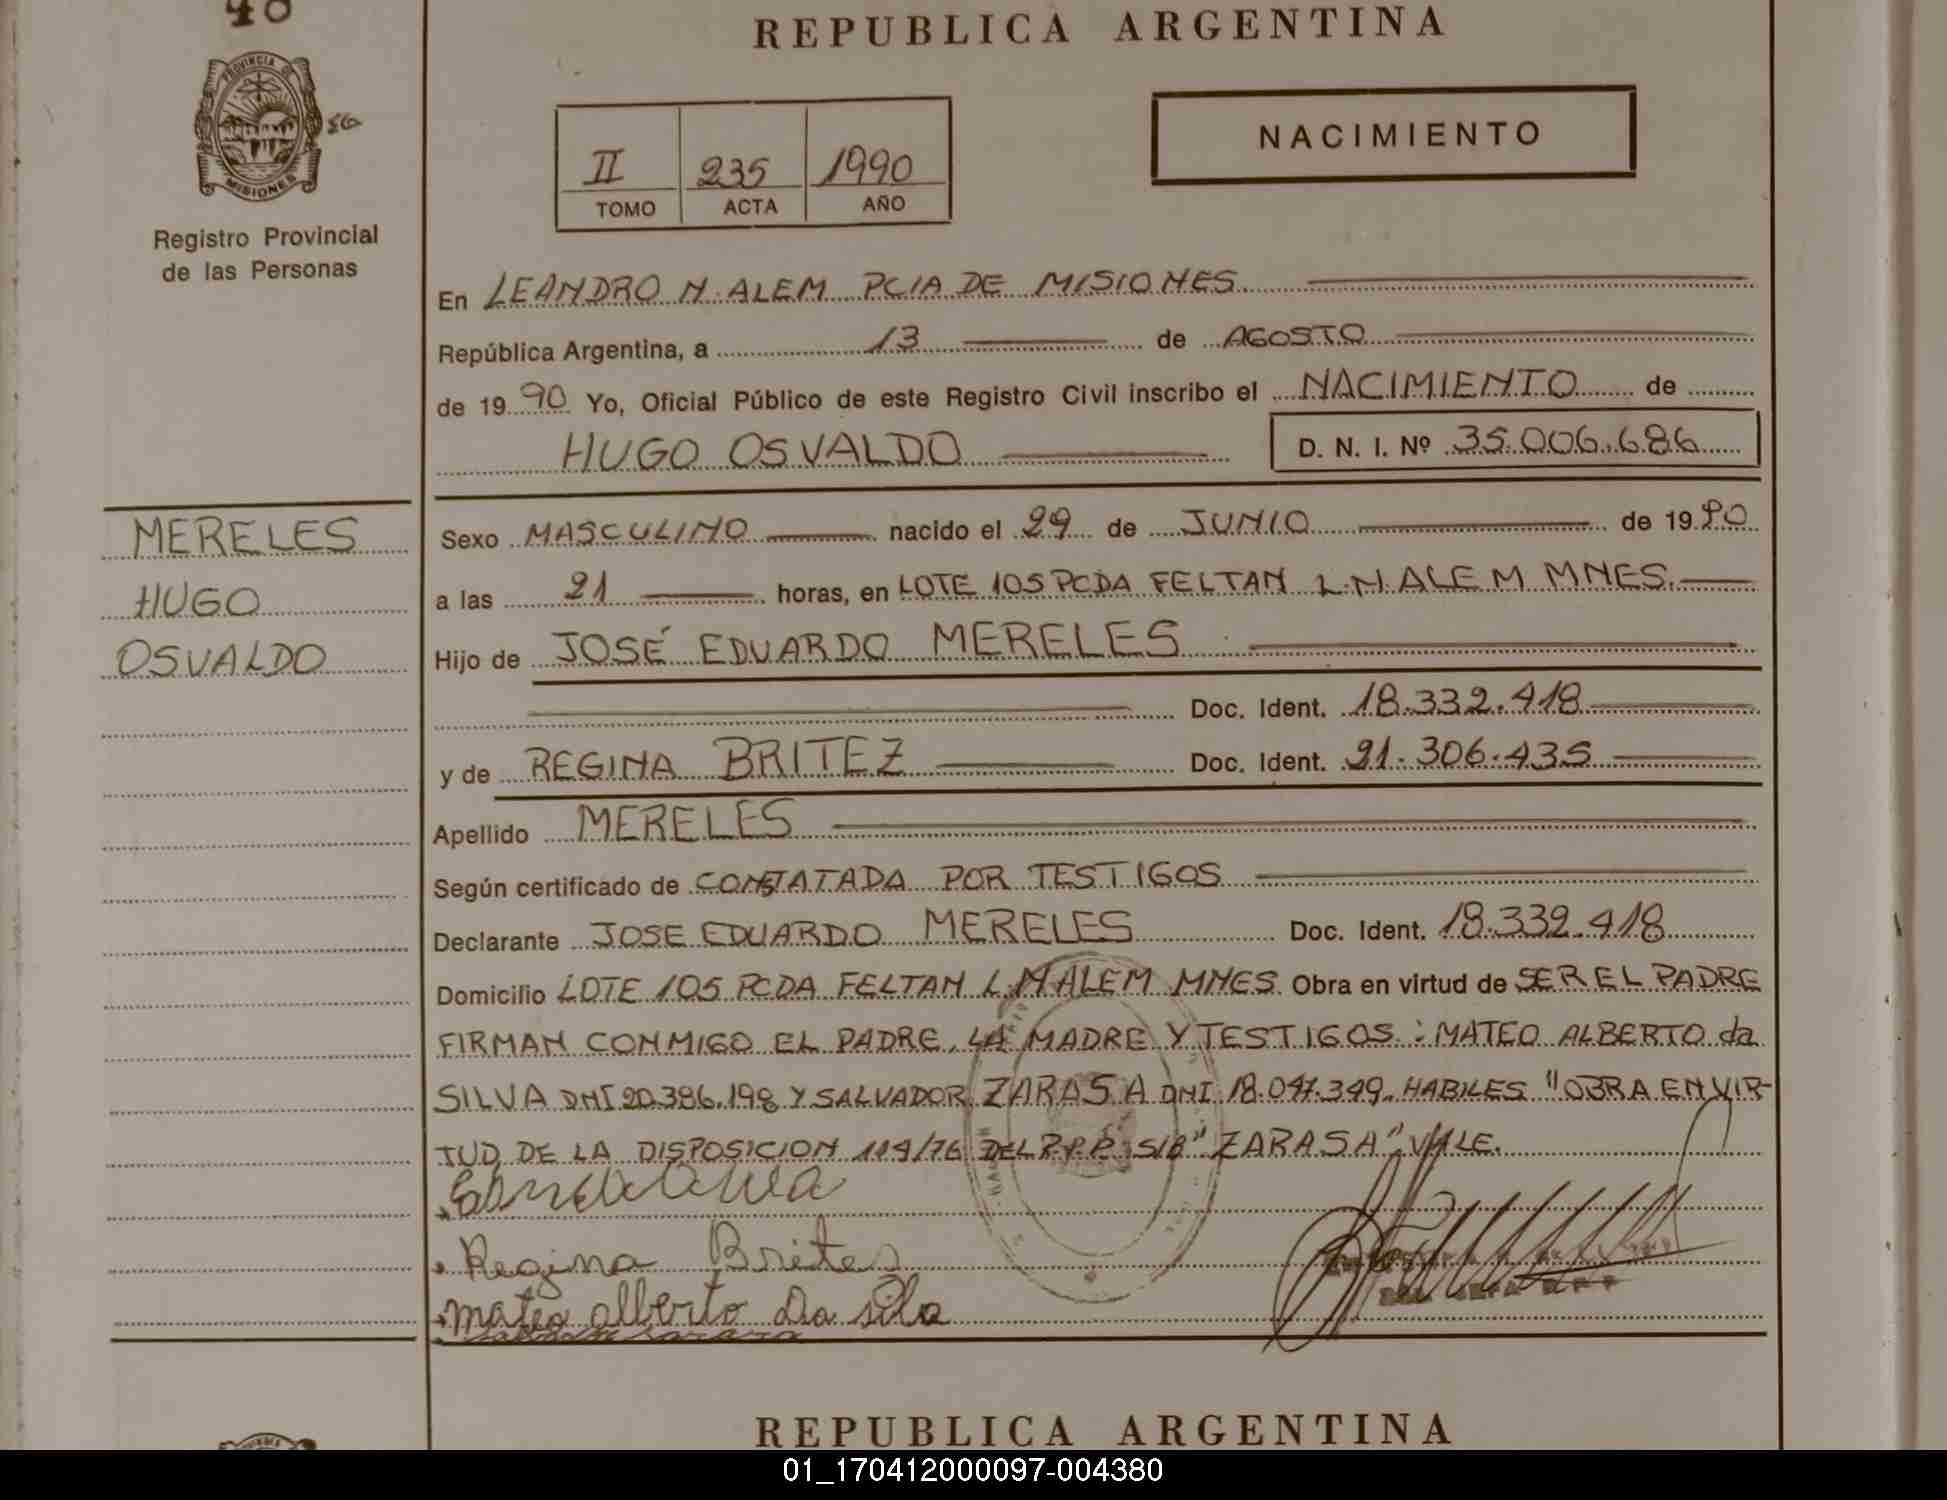 48
REPUBLICA ARGENTINA
PROVINCIA DE
MISIONES
Registro Provincial
de las Personas
II 235 1990
TOMO ACTA AÑO
NACIMIENTO
En LEANDRO N. ALEM PCIA DE MISIONES
República Argentina, a 13 de AGOSTO
de 1990 Yo, Oficial Público de este Registro Civil inscribo el NACIMIENTO de
HUGO OSVALDO D. N. I. Nº 35.006.686
MERELES
HUGO
OSVALDO
Sexo MASCULINO nacido el 29 de JUNIO de 1990
a las 21 horas, en LOTE 105 PCDA FELTAN L.N. ALEM MNES.
Hijo de JOSÉ EDUARDO MERELES
Doc. Ident. 18.332.418
y de REGINA BRITEZ Doc. Ident. 21.306.435
Apellido MERELES
Según certificado de CONSTATADA POR TESTIGOS
Declarante JOSE EDUARDO MERELES Doc. Ident. 18.332.418
Domicilio LOTE 105 PCDA FELTAN L.N ALEM MNES Obra en virtud de SER EL PADRE
FIRMAN CONMIGO EL PADRE, LA MADRE Y TESTIGOS: MATEO ALBERTO da
SILVA DNI 20.386.198 Y SALVADOR ZARASA DNI 18.047.349. HABILES "OBRA EN VIR-
TUD DE LA DISPOSICION 114/76 DEL R.P.P. S/B "ZARASA" VALE.
Regina Brites
mateo alberto da silva
REPUBLICA ARGENTINA
01_170412000097-004380